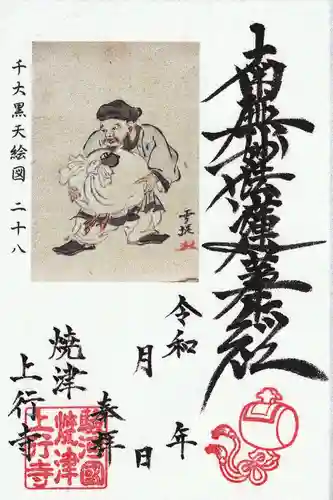 南無妙法蓮華経
千大黒天絵図 二十八
令和 年
月 日
奉拝
焼津
上行寺
駿河國
焼津
上行寺